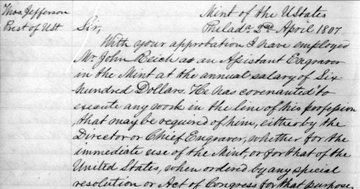 Thos Jefferson
Prest of USt
Mint of the UStates
Philada 2nd April 1807
Sir,
With your approbation I have employed
Mr John Reich as an Assistant Engraver
in the Mint at the annual salary of Six
hundred Dollars. He has covenanted to
execute any work in the line of his profession
that may be required of him, either by the
Director or Chief Engraver, whether for the
immediate use of the Mint, or for that of the
United States, when ordered by any special
resolution or Act of Congress for that purpose